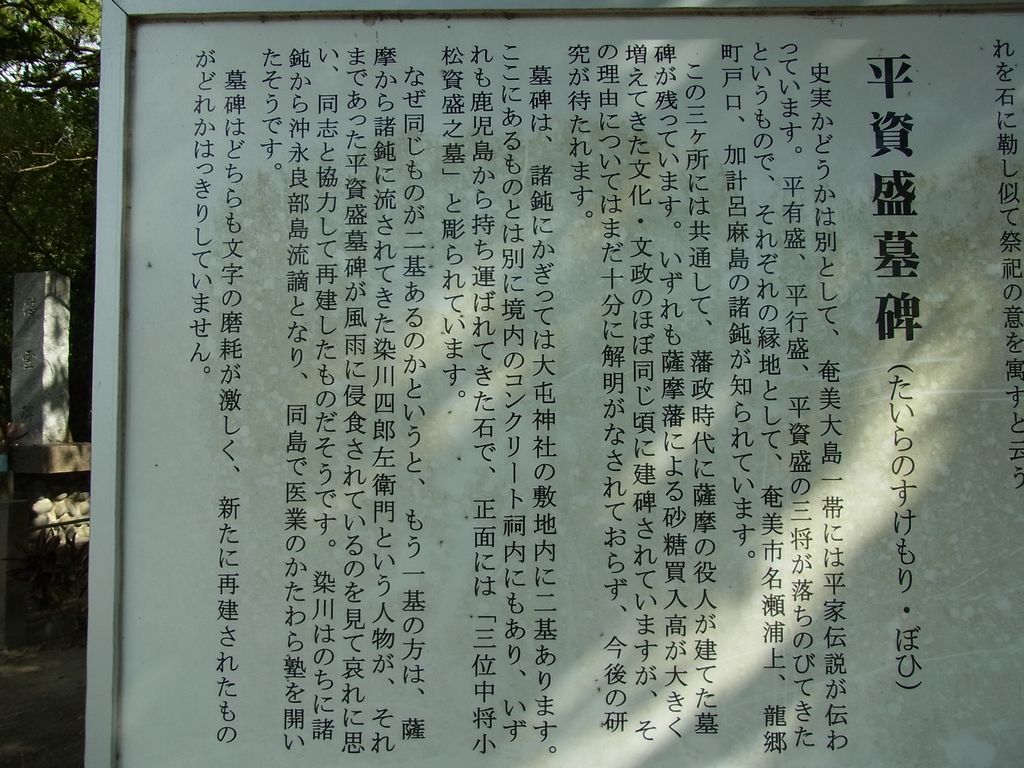 れを石に勒し似て祭祀の意を寓すと云う
平資盛墓碑(たいらのすけもり・ぼひ)
史実かどうかは別として、奄美大島一帯には平家伝説が伝わ
っています。平有盛、平行盛、平資盛の三将が落ちのびてきた
というもので、それぞれの縁地として、奄美市名瀬浦上、龍郷
町戸口、加計呂麻島の諸鈍が知られています。
この三ヶ所には共通して、藩政時代に薩摩の役人が建てた墓
碑が残っています。いずれも薩摩藩による砂糖買入高が大きく
増えてきた文化・文政のほぼ同じ頃に建碑されていますが、そ
の理由についてはまだ十分に解明がなされておらず、今後の研
究が待たれます。
墓碑は、諸鈍にかぎっては大屯神社の敷地内に二基あります。
ここにあるものとは別に境内のコンクリート祠内にもあり、いず
れも鹿児島から持ち運ばれてきた石で、正面には「三位中将小
松資盛之墓」と彫られています。
なぜ同じものが二基あるのかというと、もう一基の方は、薩
摩から諸鈍に流されてきた染川四郎左衛門という人物が、それ
まであった平資盛墓碑が風雨に侵食されているのを見て哀れに思
い、同志と協力して再建したものだそうです。染川はのちに諸
鈍から沖永良部島流謫となり、同島で医業のかたわら塾を開い
たそうです。
墓碑はどちらも文字の磨耗が激しく、新たに再建されたもの
がどれかはっきりしていません。